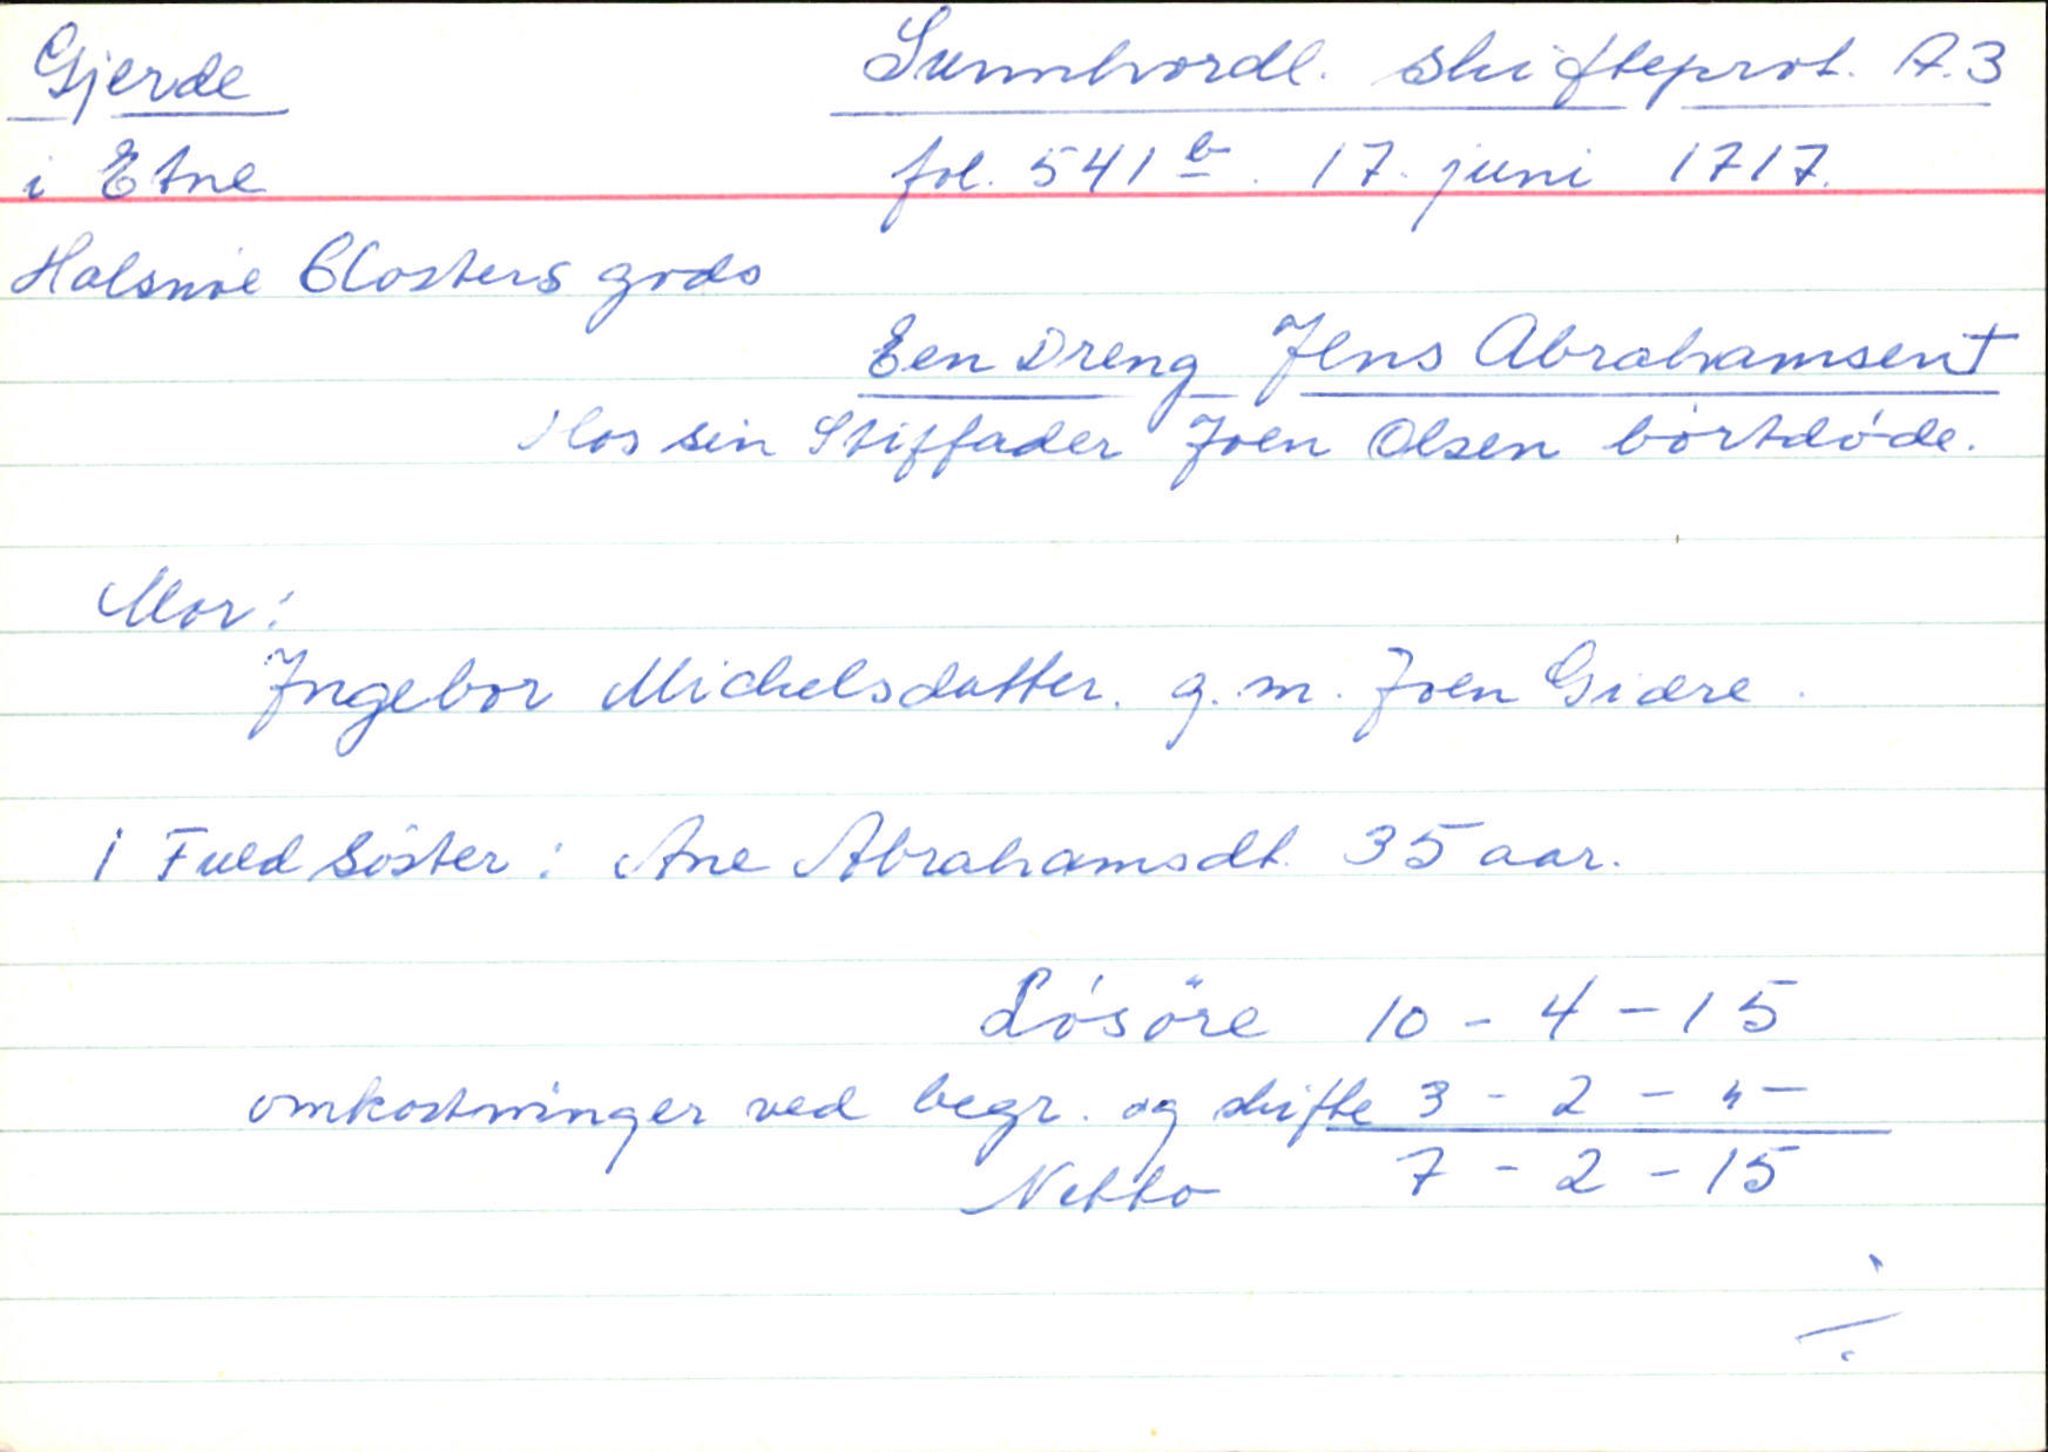 Gjerde
Sunnhordl. skifteprot. A.3
i Etne
fol. 541 b. 17. juni 1717.
Halsnøe Closters gods
Een Dreng Jens Abrahamsen †
Hos sin Stiffader Joen Olsen bortdøde.
Mor:
Ingebor Michelsdatter. g.m. Joen Giære.
1 Fuld Söster: Ane Abrahamsdt. 35 aar.
Lösöre 10 - 4 - 15
omkostninger ved begr. og skifte 3 - 2 - " -
Netto 7 - 2 - 15
./.